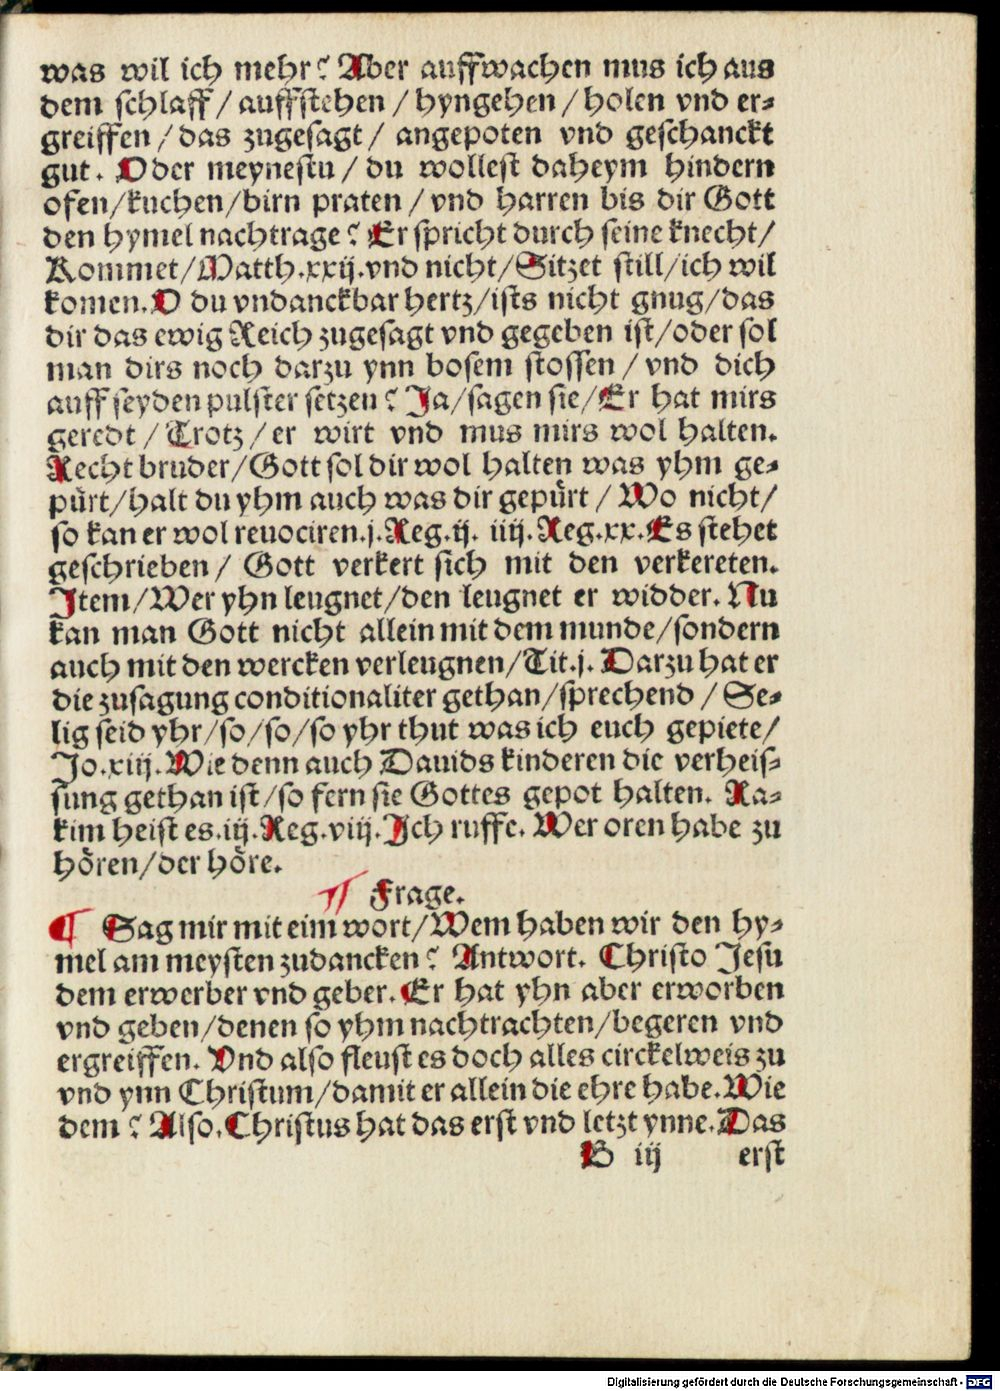 was wil ich mehr? Aber auffwachen mus ich aus
dem schlaff / auffstehen / hyngehen / holen vnd er-
greiffen / das zugesagt / angepoten vnd geschanckt
gut. Oder meynestu / du wollest daheym hindern
ofen/kuchen/birn praten / vnd harren bis dir Gott
den hymel nachtrage? Er spricht durch seine knecht/
Kommet/Matth.xxij.vnd nicht/Sitzet still/ich wil
komen.O du vndanckbar hertz/ists nicht gnug/das
dir das ewig Reich zugesagt vnd gegeben ist/oder sol
man dirs noch darzu ynn bosem stossen / vnd dich
auff seyden pulster setzen? Ja/sagen sie/Er hat mirs
geredt / Trotz / er wirt vnd mus mirs wol halten.
Recht bruder/Gott sol dir wol halten was yhm ge-
pürt/halt du yhm auch was dir gepürt / Wo nicht/
so kan er wol reuociren.j.Reg.ij. iiij.Reg.xx.Es stehet
geschrieben / Gott verkert sich mit den verkereten.
Item/Wer yhn leugnet/den leugnet er widder. Nu
kan man Gott nicht allein mit dem munde/sondern
auch mit den wercken verleugnen/Tit.j. Darzu hat er
die zusagung conditionaliter gethan/sprechend / Se-
lig seid yhr/so/so/so yhr thut was ich euch gepiete/
Jo.xiij.Wie denn auch Dauids kinderen die verheis-
sung gethan ist/so fern sie Gottes gepot halten. Ra-
kim heist es.iij.Reg.viij.Ich ruffe. Wer oren habe zu
hören/der höre.
¶ Frage.
¶ Sag mir mit eim wort/Wem haben wir den hy-
mel am meysten zudancken? Antwort. Christo Jesu
dem erwerber vnd geber.Er hat yhn aber erworben
vnd geben/denen so yhm nachtrachten/begeren vnd
ergreiffen. Vnd also fleust es doch alles circkelweis zu
vnd ynn Christum/damit er allein die ehre habe.Wie
dem? Also.Christus hat das erst vnd letzt ynne.Das
B iij erst
Digitalisierung gefördert durch die Deutsche Forschungsgemeinschaft - DFG